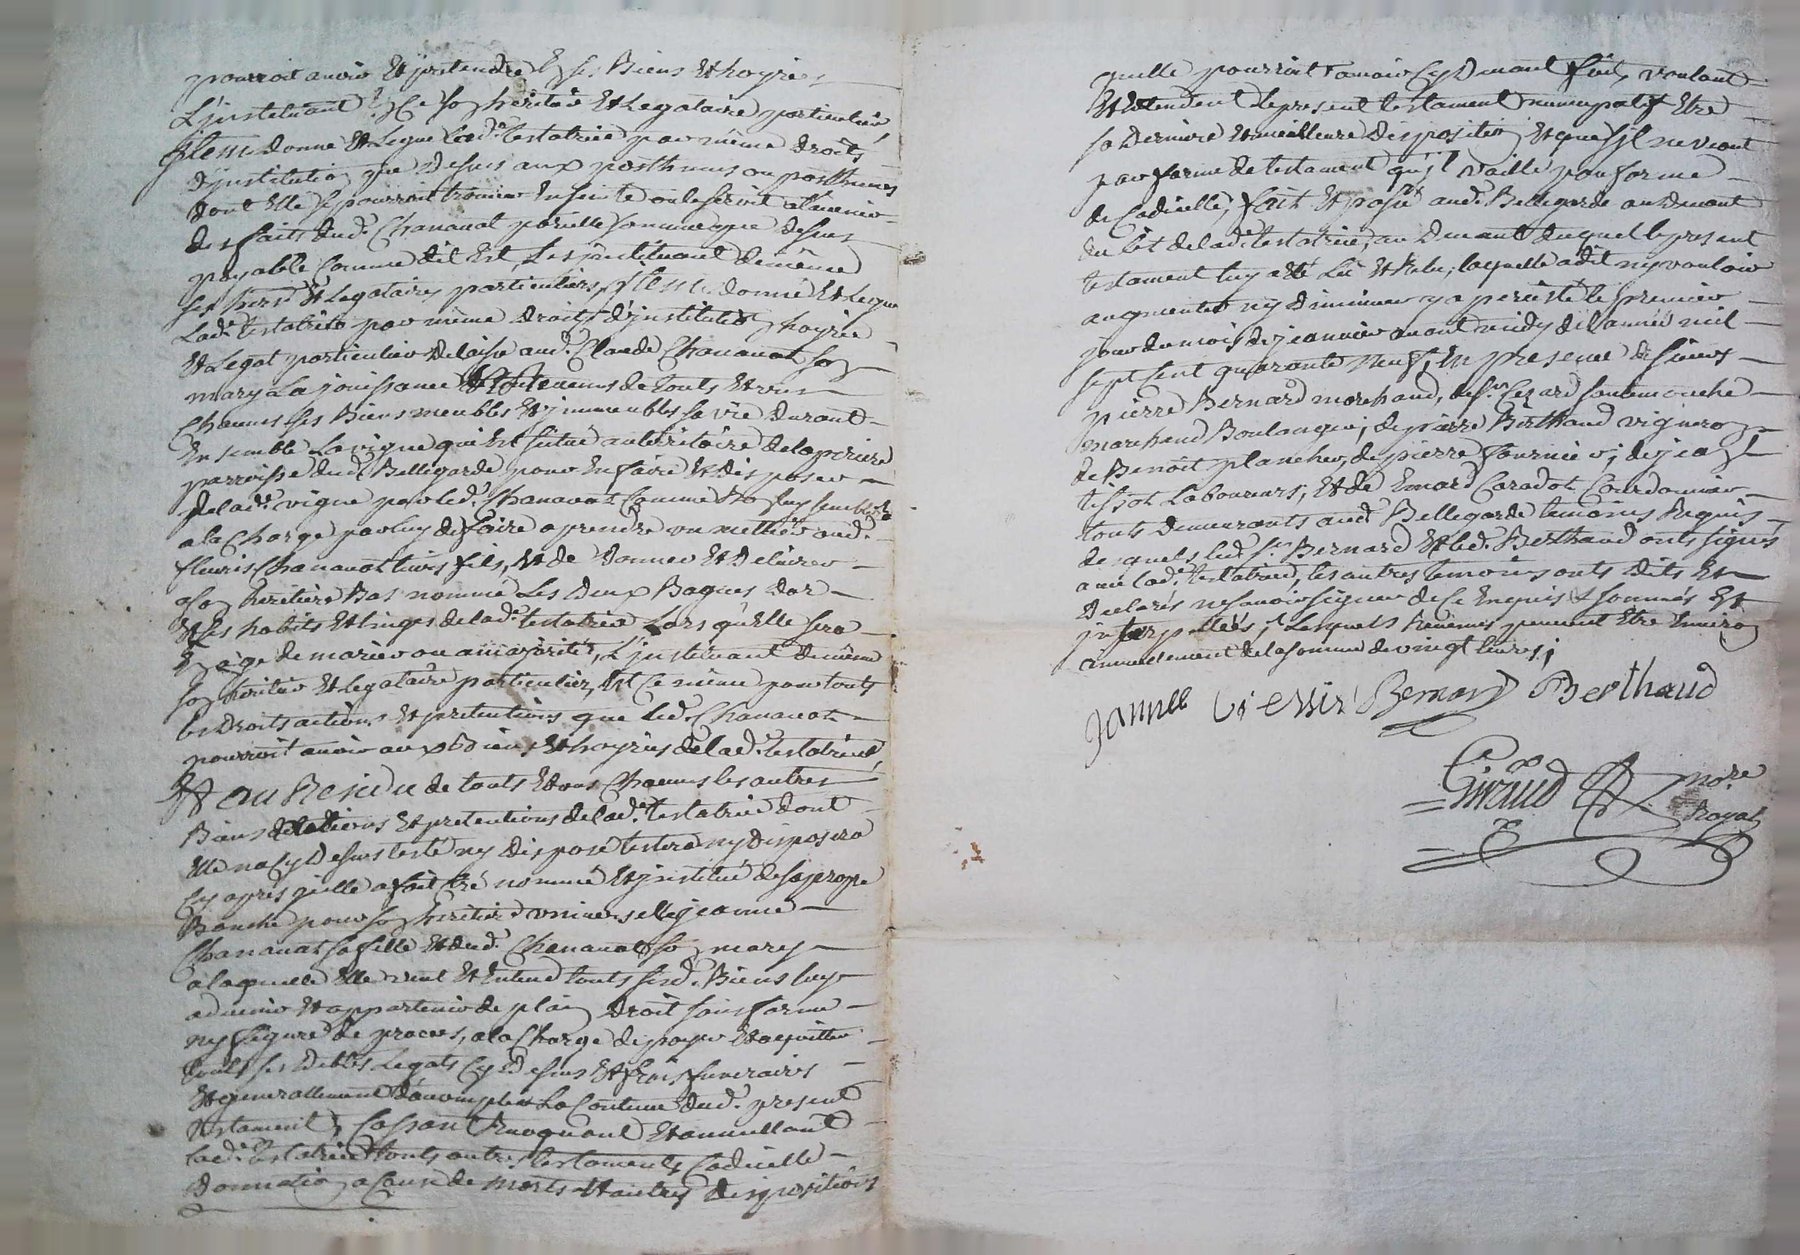 pourroit avoir Et pretendre En ses Biens Et hoyries
L'instituant En Ce son heritier Et Legataire particulier
Item donne Et Legue lad.e testatrice par même droits
d'institution que dessus aux posthumes ou posthumes
dont Elle se pourroit trouver Enseinte ou le seroit a l'avenir
des faits dud. Chanavat pareille somme que dessus
payable Comme dit Est, Les instituant de même
ses hers Et Legataires particuliers, Item donne Et Legue
Lad.e testatrice par même droits d'institution, hoyrie
Et Legat particulier delaisse aud. Claude Chanavat son
mary La jouissance Et Revenus de touts Et uns
Chacuns ses Biens meubles Et immeubles sa vie durant
Ensemble La vigne qui Est situé au territoire de la periere
parroisse dud. Bellegarde pour En faire Et disposer
de lad.e vigne par led. Chanavat Comme bon luy semblera
a la Charge par luy de faire aprendre un mettier aud.
fleuris Chanavat leurs fils, Et de donner Et Delivrer
a son heritiere Bas nommé Les deux Bagues d'or
Et Les habits Et linges de lad.e testatrice Lors qu'Elle sera
En age de marier ou a majorité, L'instituant de même
son heritier Et Legataire particulier, Et Ce même pour touts
les droits actions Et pretentions que led. Chanavat
pourroit avoir aux Biens Et hoyries de lad.e testatrice
Et au Residu de touts Et uns Chacuns les autres
Biens Et pretentions de lad.e testatrice dont
Elle n'a Cy Dessus testé ny disposé testera ny disposera
Cy après jcelle a fait Créé nommé Et institué de sa propre
Bouche pour son heritiere universelle jeanne
Chanavat sa fille Et dud. Chanavat son mary
a laquelle Elle veut Et Entend touts sesd. Biens luy
advenir Et appartenir de plain droit sans forme
ny figure de proces, a la Charge de payer Et acquitter
touts ses debtes Legats Cy Dessus Et frais funeraires
Et generallement d'acomplir Le Contenu dud. present
testament, Cassant Revoquant Et annullant
lad.e testatrice touts autres testaments Codicille
donnation a Cause de morts Et autres dispositions
qu'elle pourroit avoir Cy Devant fait, voulant
Et Entendent Le present testament nuncupatif Etre
sa Derniere Et meilleure disposition Et que s'il ne vaut
par forme de testament qu'il vaille par forme
de Codicille, fait Et passé aud. Bellegarde au Devant
du lit de lad.e testatrice, au Devant duquel le present
testament luy a été Lû Et Relu, laquelle a dit ny vouloir
augmenter ny diminuer y a persisté le premier
jour du mois de jeanvier avant midy de l'année mil
sept Cent quarante neuf, En presence de sieurs
pierre Bernard marchand, de sr. Cezard
marchand Boulanger, de pierre Berthaud vigneron
de Benoit plancher, de pierre fournier, de jean
tissot Laboureurs, Et de Emard Caradot Cordonnier
touts demeurants aud. Bellegarde temoins Requis
desquels led. sr. Bernard Et led. Berthaud onts signés
avec lad.e testatrice, les autres temoins onts dits Et
Declarés ne sçavoir signer de Ce Enquis Et sommés Et
interpellés, Lesquels Revenus peuvent Etre Environ
annuellement de la somme de vingt livres,
Bernard Berthaud
Giraud no.re
Royal